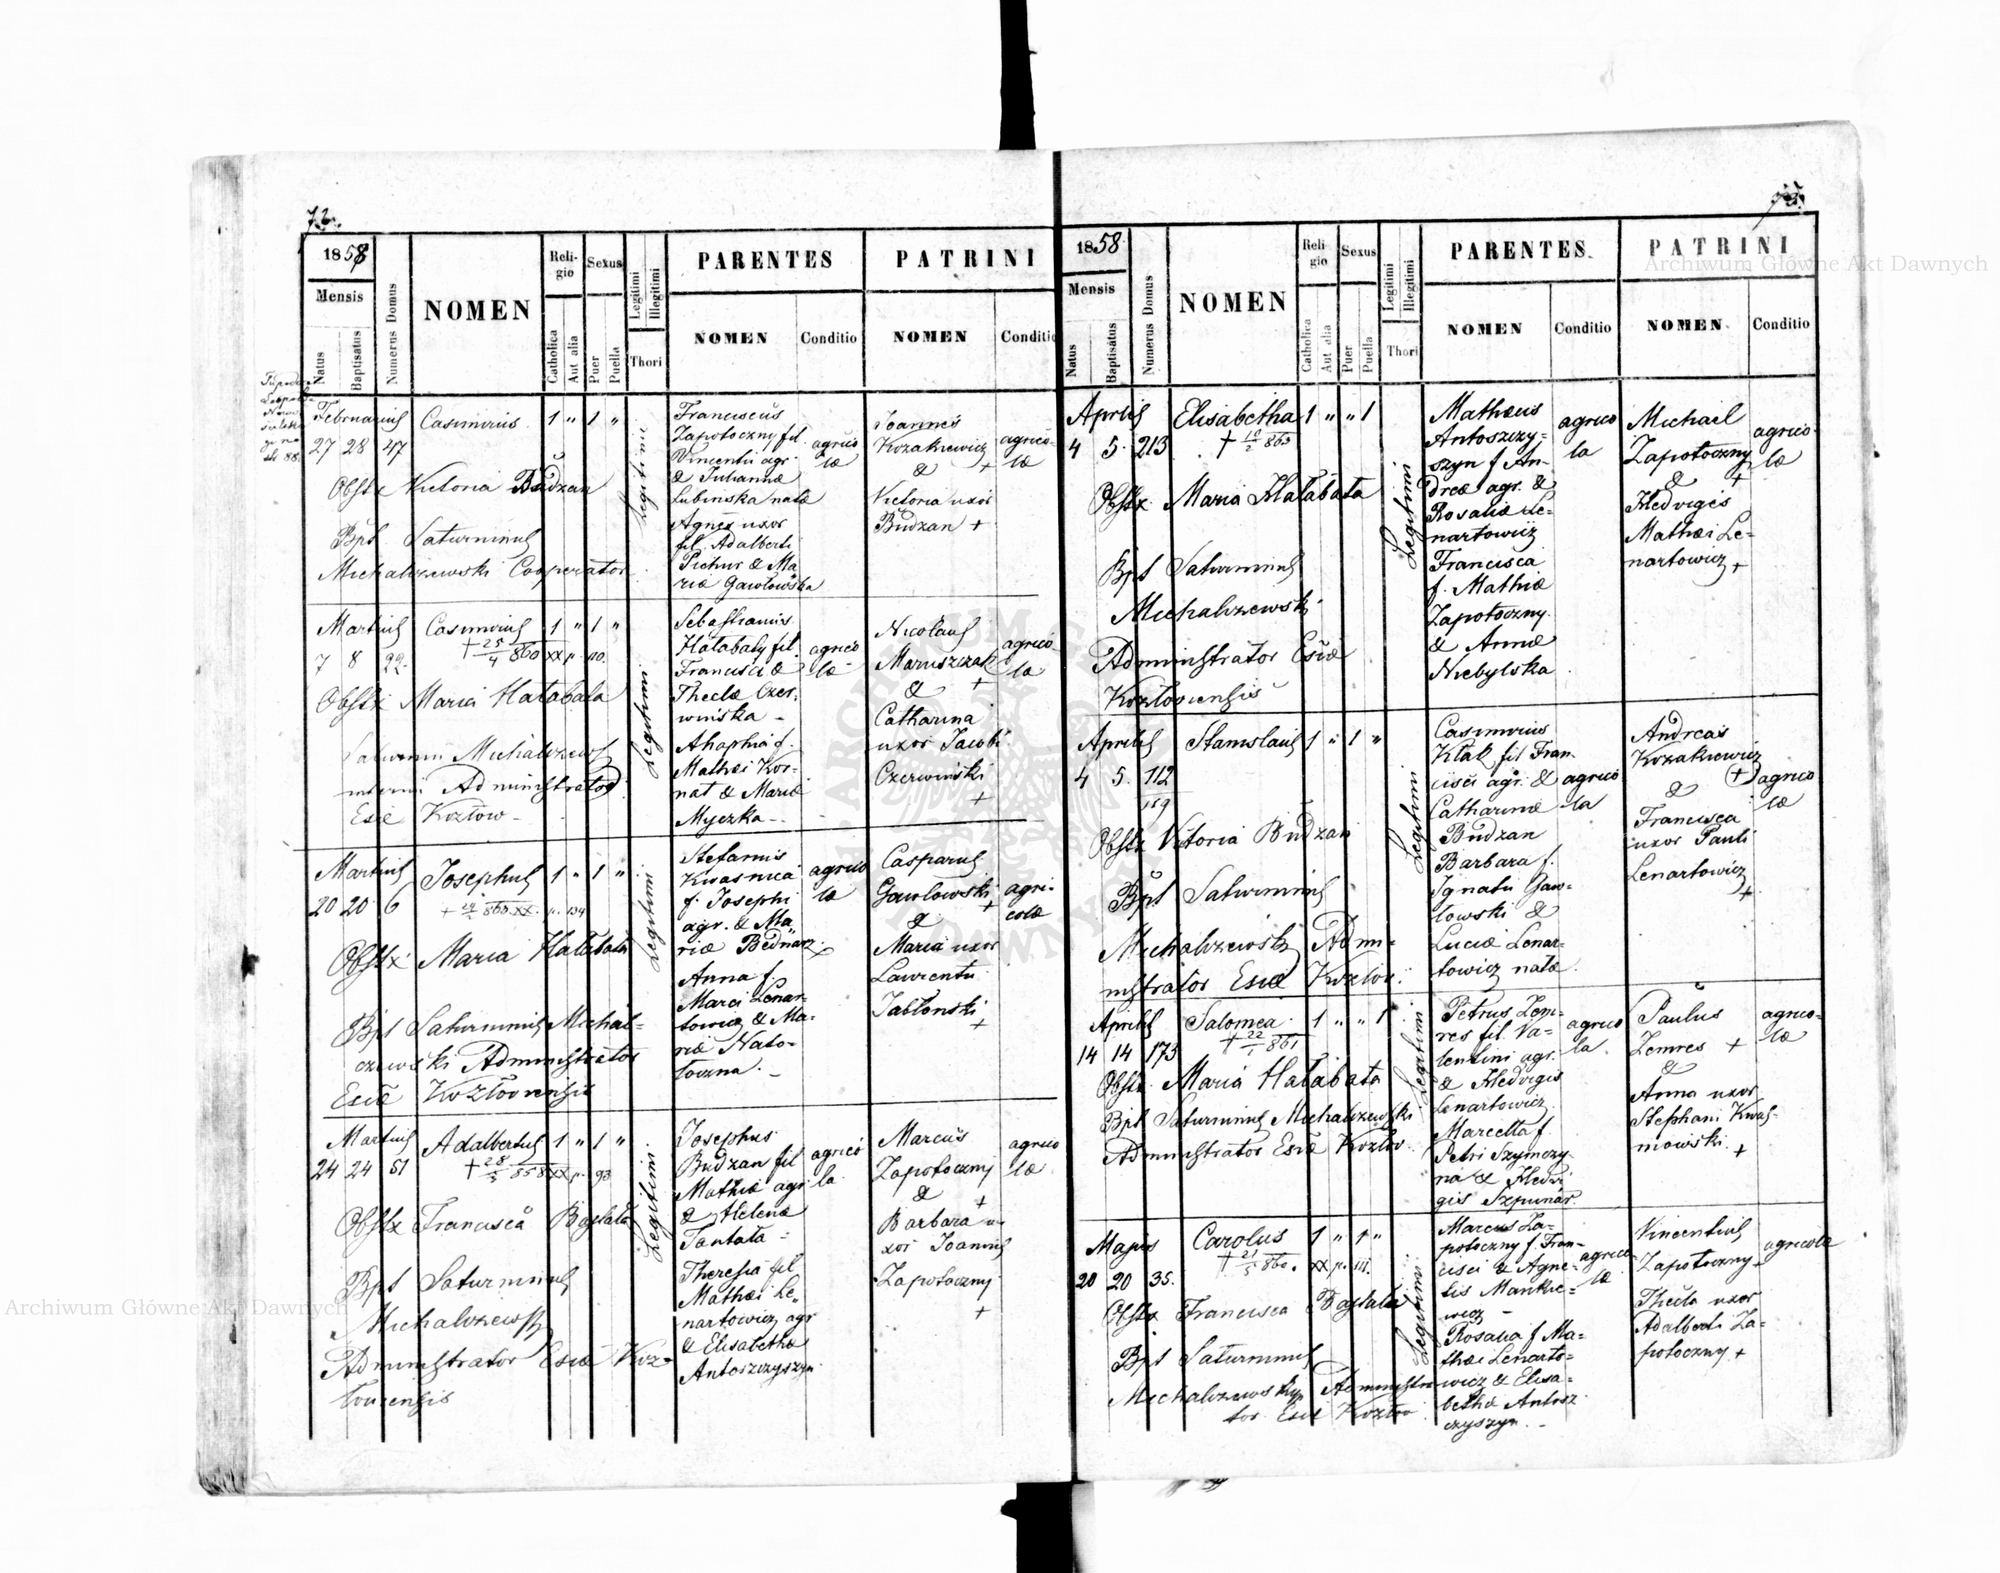 72.
1858
Mensis
Natus
Baptisatus
Numerus Domus
NOMEN
Religio
Catholica
Aut alia
Sexus
Puer
Puella
Legitimi
Illegitimi
Thori
PARENTES
NOMEN
Conditio
PATRINI
NOMEN
Conditio
Februarius
27 28 47
Casimirus 1 " 1 "
Obstx Victoria Budzan
Bpt Saturninus
Michalczewski Cooperator
Legitimi
Franciscus
Zapotoczny fil.
Vincentii agr.
& Julianna
Lubinska nata
Agnes uxor
fil. Adalberti
Pichur & Ma
riæ Gawłowska
agrico
læ
Joannes
Kozakiewicz
& +
Victoria uxor
Budzan +
agrico-
læ
Martius
7 8 22.
Casimirus 1 " 1 "
† 25/4 860 XX p. 110.
Obstx Maria Hałabala
Saturnin Michalczewski
interni Administrator
Esiæ Kozłow-
Legitimi
Sebastianus
Hałabaly fil.
Francisci &
Theclæ Czer-
winska -
Ahaphia f.
Mathæi Kor-
nat & Mariæ
Myczka -
agrico
læ
Nicolaus
Maruszczak
& +
Catharina
uxor Jacobi
Czerwinski
+
agrico-
la
Martius
20 20 6
Josephus 1 " 1 "
† 24/2 860 XX. p. 134
Obstx Maria Hałabala
Bpt Saturninus Michal-
czewski Administrator
Esiæ Kozłoviensis
Legitimi
Stefanus
Kwasnica
f. Josephi
agr. & Ma
riæ Bednarz
Anna f.
Marci Lenar-
towicz & Ma-
riæ Nato-
toczna. -
agrico
la
Casparus
Gawłowski
& +
Maria uxor
Laurentii
Jabłonski
+
agri-
colæ
Martius
24 24 51
Adalbertus 1 " 1 "
† 28/5 858 XX p. 93
Obstx Francisca Baglała
Bpt Saturninus
Michalczewski
Administrator Esiæ Koz-
łoviensis
Legitimi
Josephus
Budzan fil
Mathiæ agr
& Helenæ
Tantała -
Theresia fil
Mathæi Le-
nartowicz agr
& Elisabethæ
Antoszczyszyn
agrico
la
Marcus
Zapotoczny
& +
Barbara u-
xor Joannis
Zapotoczny
+
agrico
læ
1858
Mensis
Natus
Baptisatus
Numerus Domus
NOMEN
Religio
Catholica
Aut alia
Sexus
Puer
Puella
Legitimi
Illegitimi
Thori
PARENTES
NOMEN
Conditio
PATRINI
NOMEN
Conditio
Aprilis
4 5. 213
Elisabetha 1 " " 1
† 10/2 863
Obstx Maria Hałabała
Bpt Saturninus
Michalczewski
Administrator Esiæ
Kozłoviensis
Legitimi
Mathæus
Antoszczy-
szyn f An-
dreæ agr. &
Rosaliæ Le-
nartowicz
Francisca
f. Mathiæ
Zapotoczny
& Annæ
Niebylska
agrico
la
Michael
Zapotoczny
& +
Hedviges
Mathæi Le-
nartowicz +
agrico-
læ
Aprilis
4 5. 112
159
Stanislaus 1 " 1 "
Obstx Victoria Budzan
Bpt Saturninus
Michalczewski Admi-
nistrator Esiæ Kozłov.
Legitimi
Casimirus
Kłak fil Fran-
cisci agr. &
Catharinæ
Budzan
Barbara f.
Ignatii Gaw-
łowski &
Luciæ Lenar-
towicz natæ
agrico
la
Andreas
Kozakiewicz
& +
Francisca
uxor Pauli
Lenartowicz
+
agrico
læ
Aprilis
14 14 173
Salomea 1 " " 1
† 22/1 861
Obstx Maria Hałabała
Bpt Saturninus Michalczewski
Administrator Esiæ Kozłov.
Legitimi
Petrus Zem-
res fil. Va-
lentini agr.
& Hedvigis
Lenartowicz
Marcella f.
Petri Szymczy
na & Hedwi
gis Szpunar
agrico
la
Paulus
Zemres +
&
Anna uxor
Stephani Kwas-
niowski. +
agrico-
læ
Majus
20 20 35.
Carolus 1 " 1 "
† 21/5 860. XX p. 111.
Obstx Francisca Baglała
Bpt Saturninus
Michalczewski Administra-
tor Esiæ Kozłov
Legitimi
Marcus Za-
potoczny f. Fran-
cisci & Agne-
tis Mankie-
wicz -
Rosalia f Ma-
thæi Lenarto-
wicz & Elisa-
bethæ Antosz
czyszyn. -
agrico
læ
Vincentius
Zapotoczny +
Thecla uxor
Adalberti Za-
potoczny +
agricolæ
Archiwum Główne Akt Dawnych
Archiwum Główne Akt Dawnych